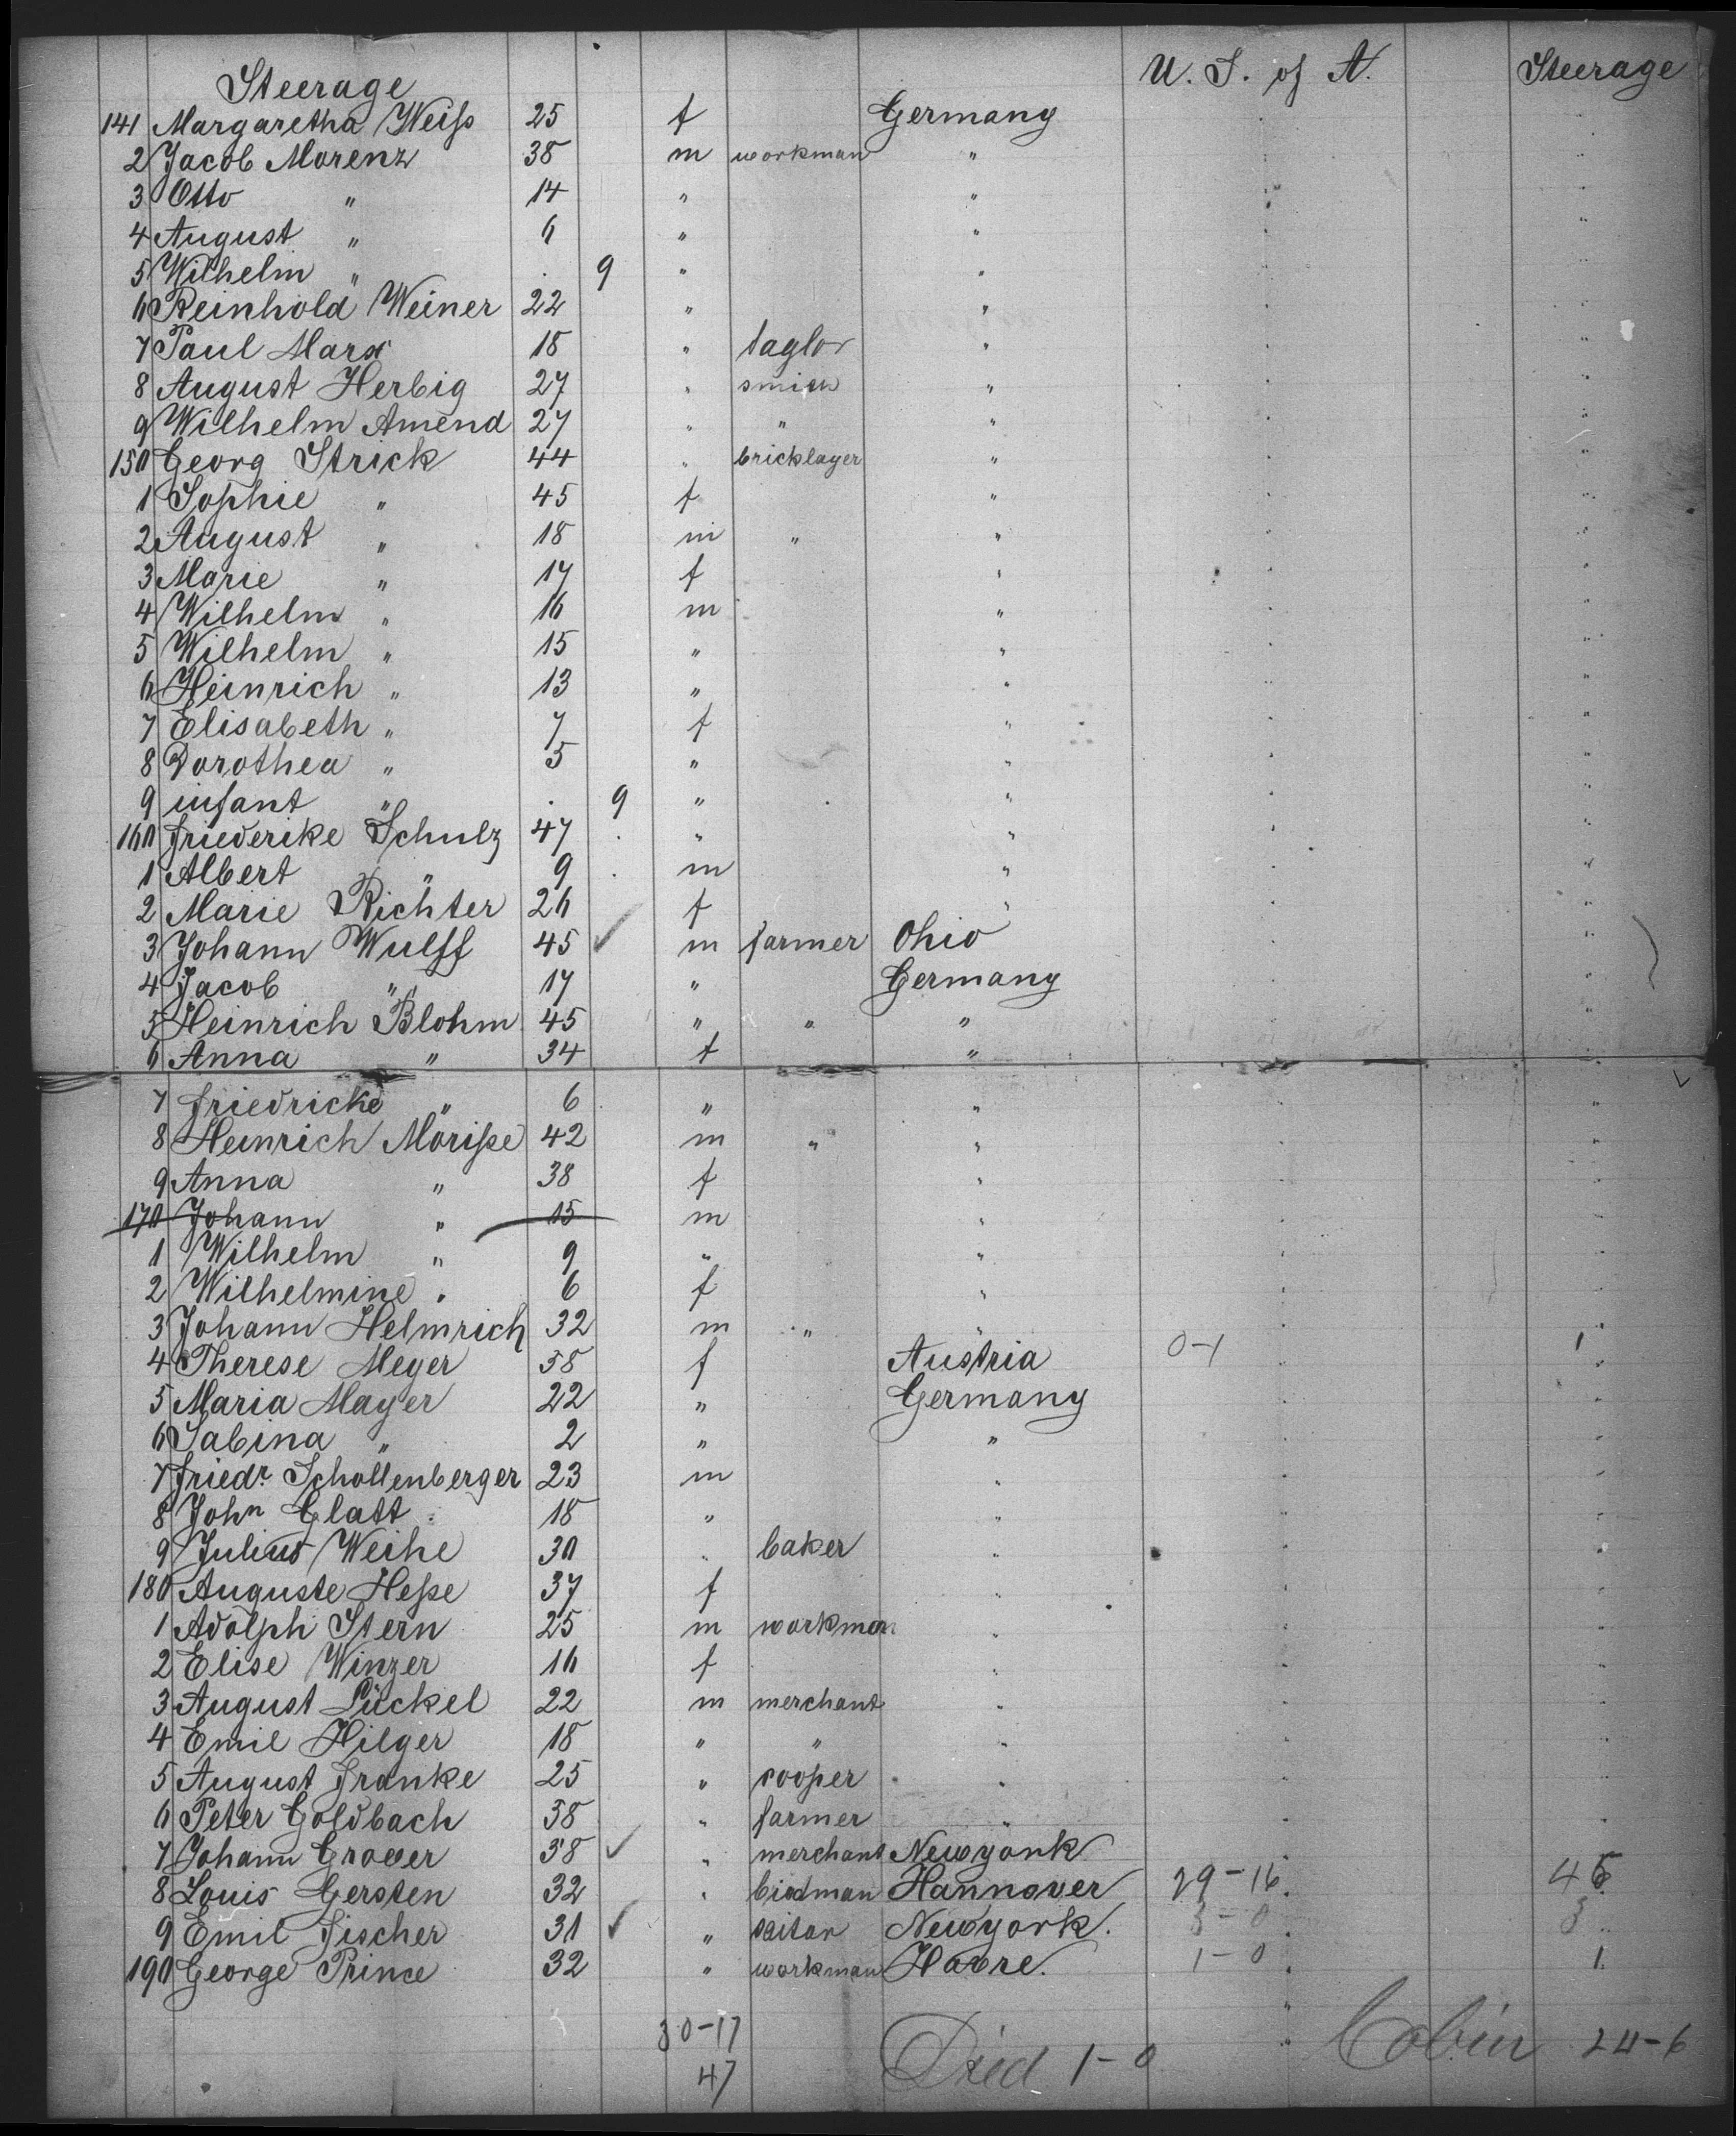 Steerage U. S. of A. Steerage
141 Margaretha Weiſs 25 f Germany
2 Jacob Morenz 38 m workman "
3 Otto " 14 " "
4 August " 6 " "
5 Wilhelm " . 9 " "
6 Reinhold Weiner 22 " "
7 Paul Marx 18 " taylor "
8 August Herbig 27 " smith "
9 Wilhelm Amend 27 " " "
150 Georg Strick 44 " bricklayer "
1 Sophie " 45 f "
2 August " 18 m " "
3 Marie " 17 f "
4 Wilhelm " 16 m "
5 Wilhelm " 15 " "
6 Heinrich " 13 " "
7 Elisabeth " 7 f "
8 Dorothea " 5 " "
9 infant " . 9 " "
160 Friederike Schulz 47 " "
1 Albert " 9 m "
2 Marie Richter 26 f "
3 Johann Wulff 45 ✓ m farmer Ohio
4 Jacob " 17 " Germany
5 Heinrich Blohm 45 " " "
6 Anna " 34 f "
7 Friedricke " 6 " "
8 Heinrich Moriſse 42 m " "
9 Anna " 38 f "
170 Johann " 15 m "
1 Wilhelm " 9 " "
2 Wilhelmine " 6 f "
3 Johann Helmrich 32 m " "
4 Therese Meyer 58 f Austria 0-1 1
5 Maria Mayer 22 " Germany
6 Sabina " 2 " "
7 Friedr. Schollenberger 23 m "
8 John Glatt 18 " "
9 Julius Weihe 30 " baker "
180 Auguste Heſse 37 f "
1 Adolph Stern 25 m workman "
2 Elise Winzer 16 f "
3 August Lückel 22 m merchant "
4 Emil Hilger 18 " " "
5 August Franke 25 " cooper "
6 Peter Goldbach 38 " farmer "
7 Johann Grover 38 ✓ " merchant Newyork
8 Louis Gersten 32 " Hannover 29-16 45
9 Emil Fischer 31 ✓ " Newyork. 3-0 3
190 George Prince 32 " workman Havre. 1-0 1
30-17 Died 1-0 Cabin 24-6
47